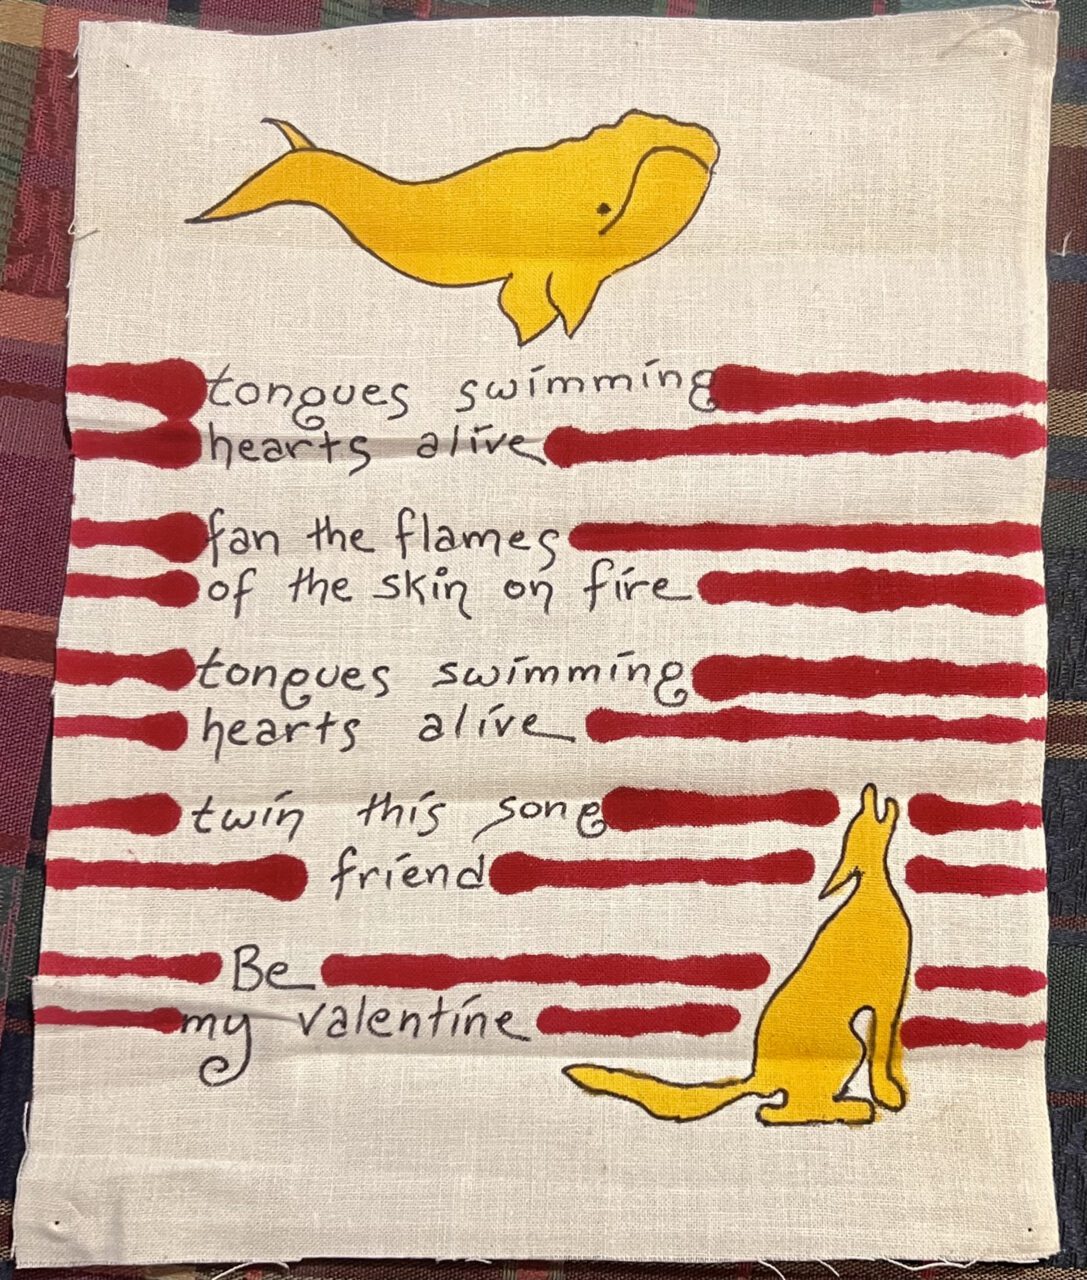 tongues swimming
hearts alive
fan the flames
of the skin on fire
tongues swimming
hearts alive
twin this song
friend
Be
my valentine